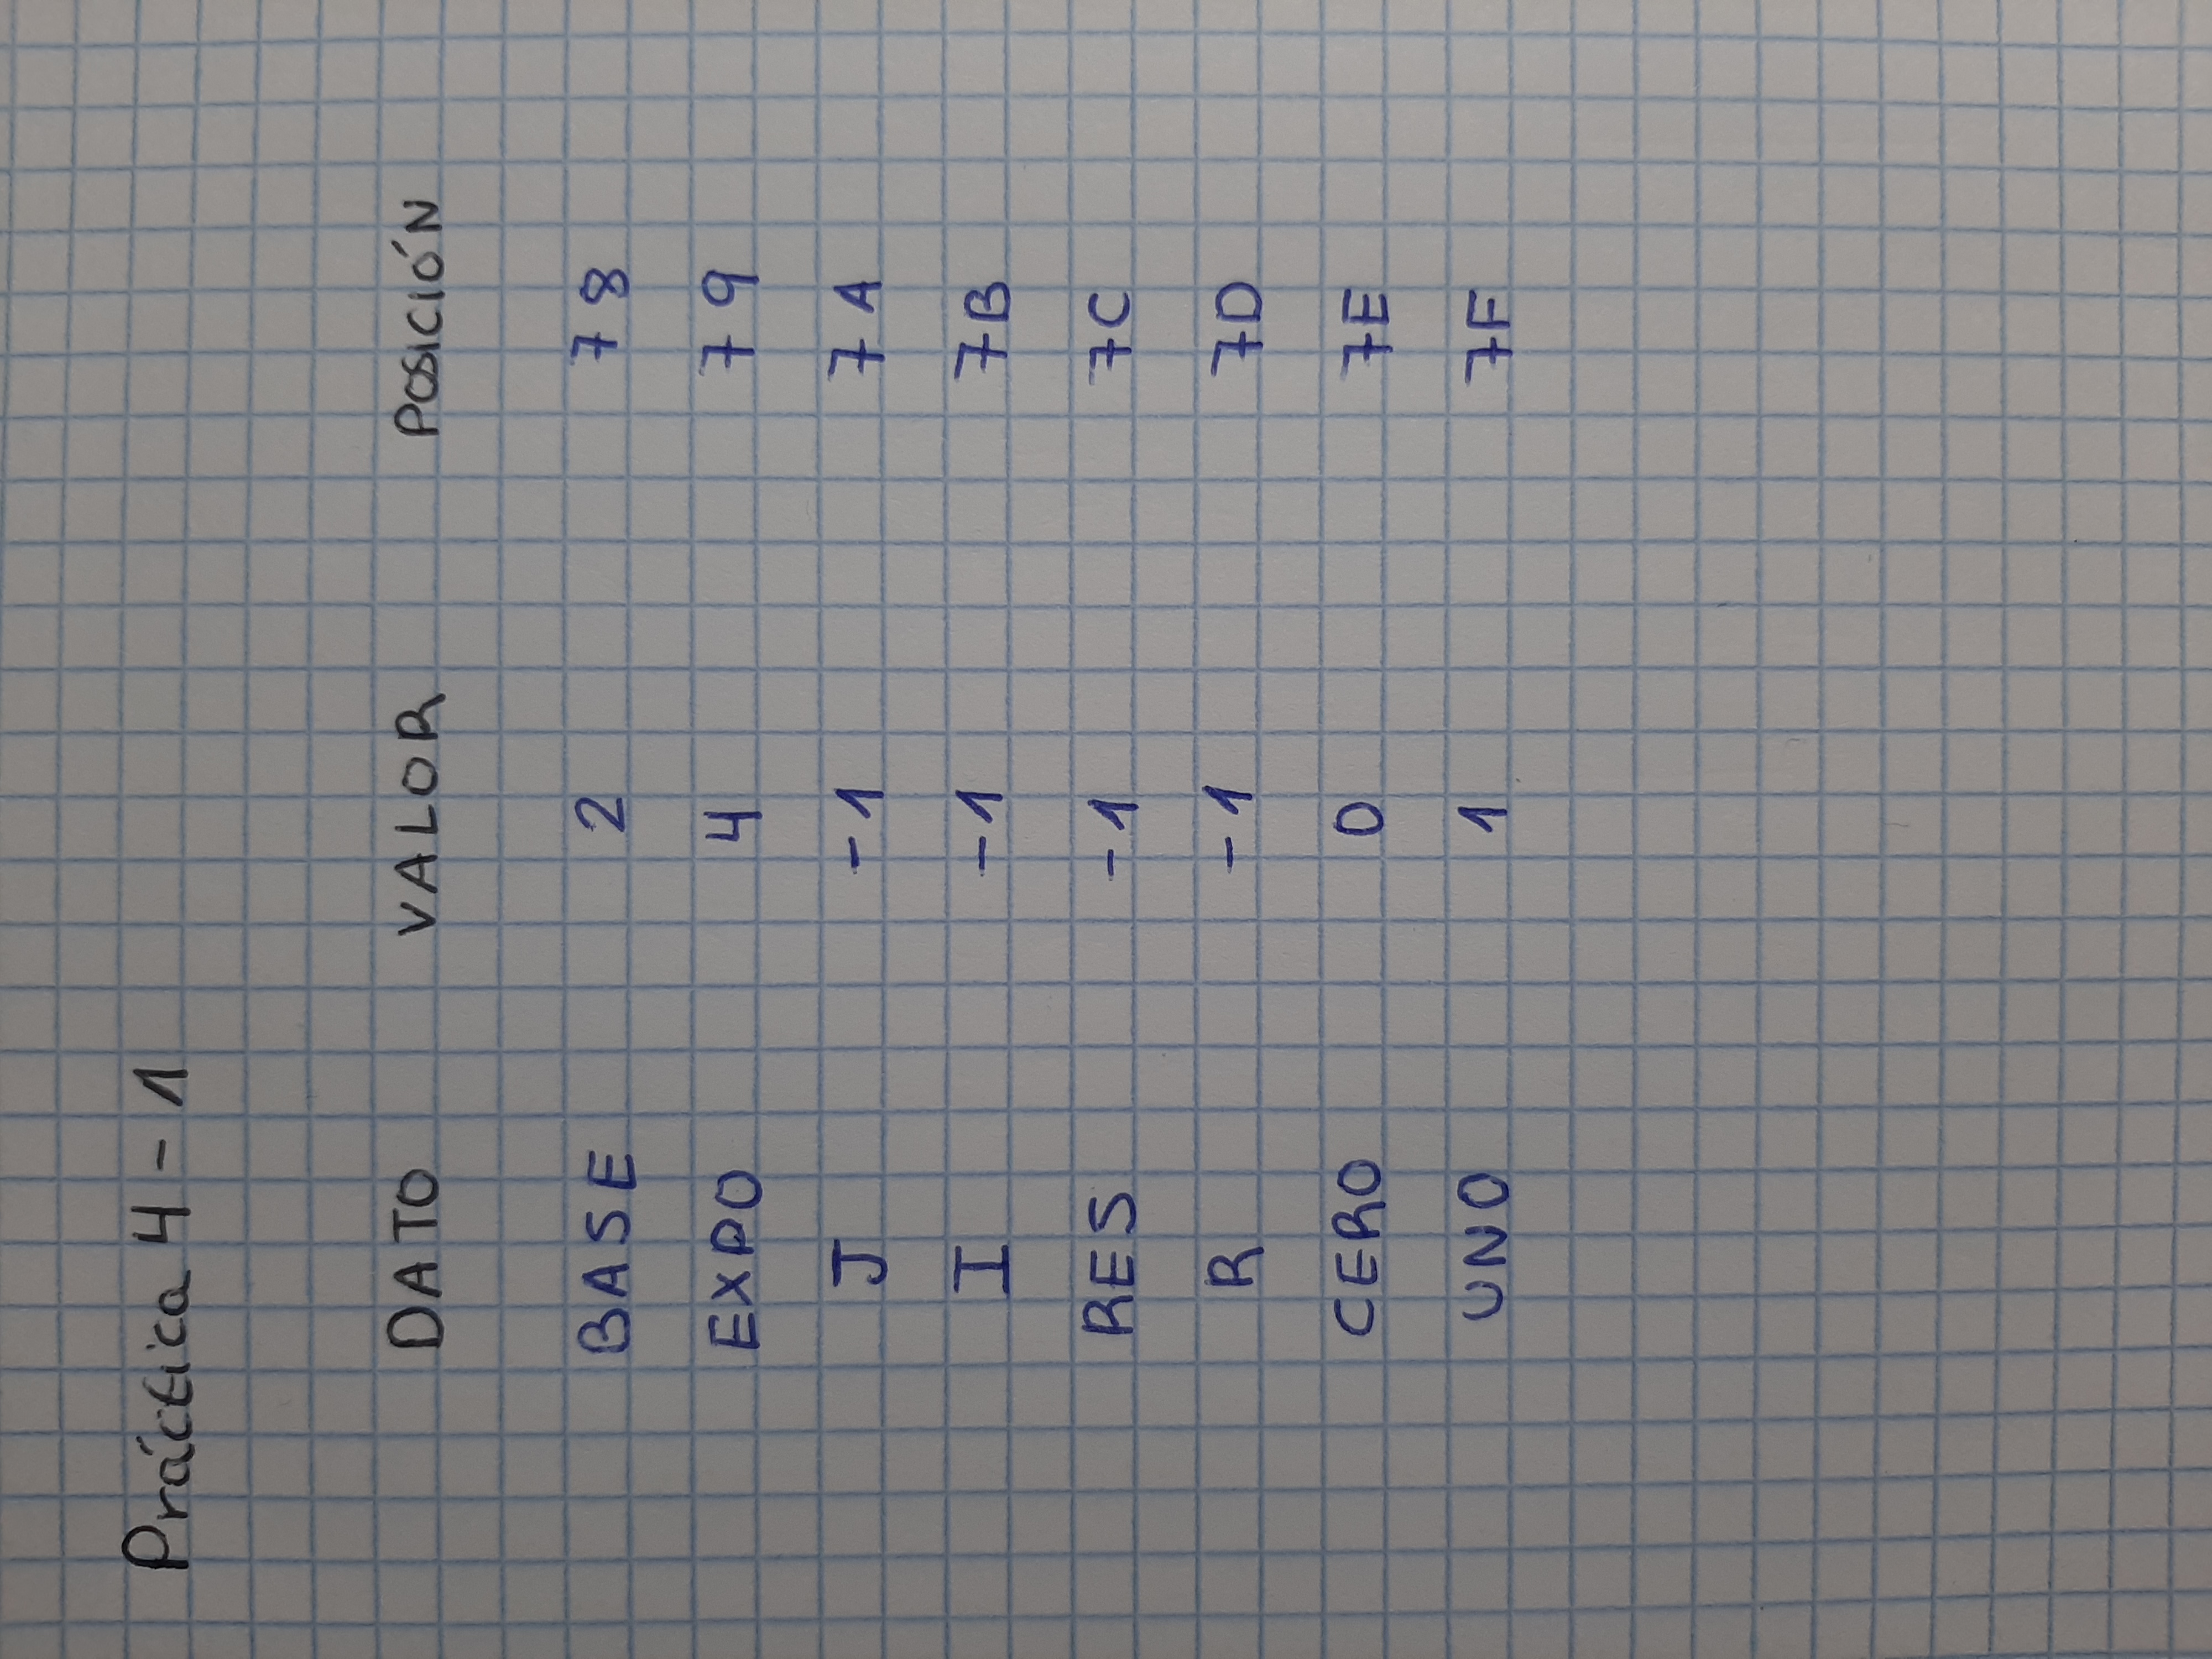 Práctica 4-1
DATO VALOR POSICIÓN
BASE 2 78
EXPO 4 79
J -1 7A
I -1 7B
RES -1 7C
R -1 7D
CERO 0 7E
UNO 1 7F